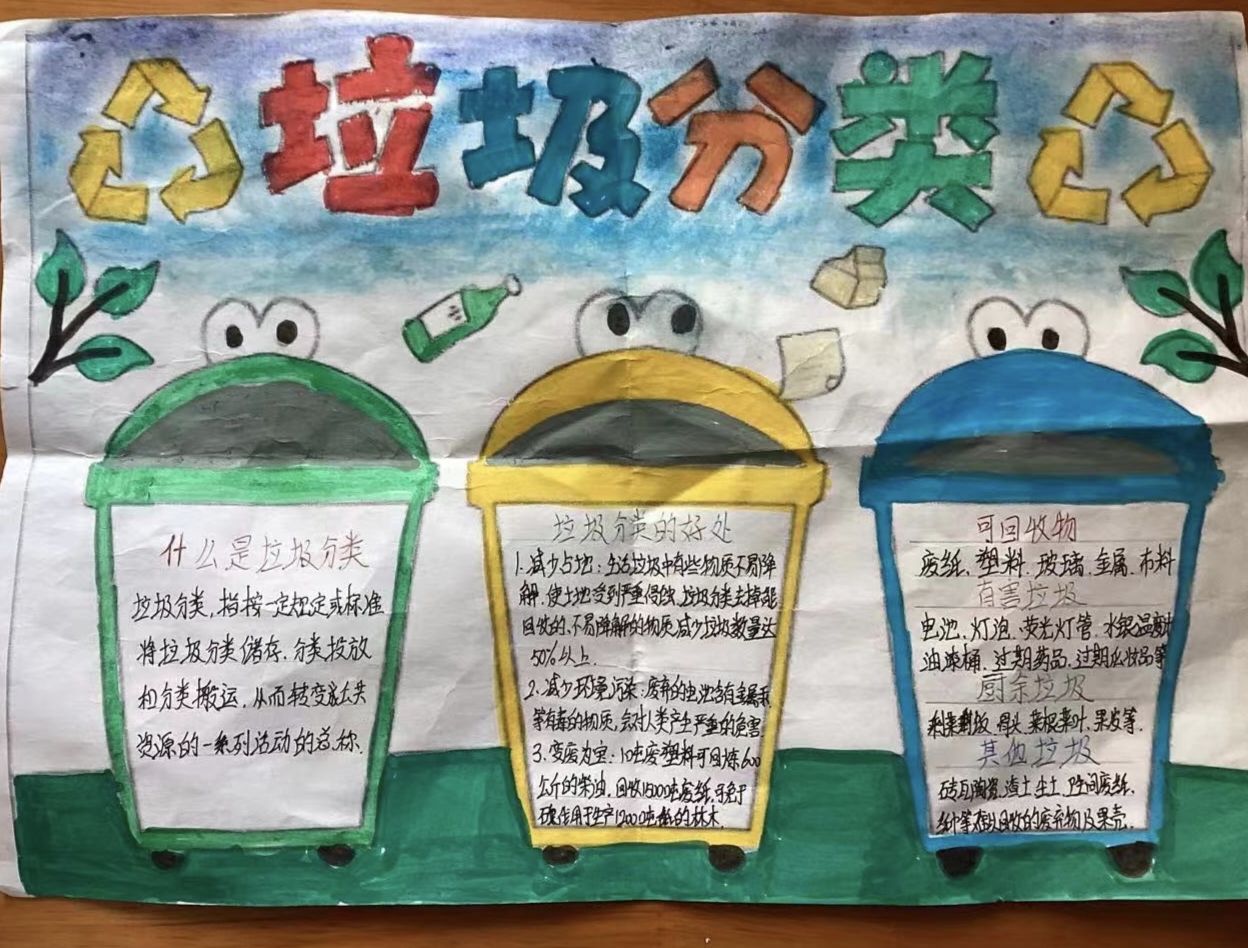 垃圾分类
什么是垃圾分类
垃圾分类，指按一定规定或标准
将垃圾分类储存，分类投放
和分类搬运，从而转变成公共
资源的一系列活动的总称.
垃圾分类的好处
1.减少占地：生活垃圾中有些物质不易降
解，使土地受到严重侵蚀，垃圾分类去掉能
回收的、不易降解的物质，减少垃圾数量达
50%以上.
2.减少环境污染：废弃的电池含有金属汞
等有毒的物质，会对人类产生严重的危害
3.变废为宝：10吨废塑料可回炼600
公斤的柴油，回收15000吨废纸，可免于
砍伐用于生产12000吨纸的林木
可回收物
废纸、塑料、玻璃、金属、布料
有害垃圾
电池、灯泡、荧光灯管、水银温度计
油漆桶、过期药品、过期化妆品等
厨余垃圾
剩菜剩饭、骨头、菜根菜叶、果皮等.
其他垃圾
砖瓦陶瓷、渣土尘土、卫生间废纸、
纸巾等难以回收的废弃物及果壳.